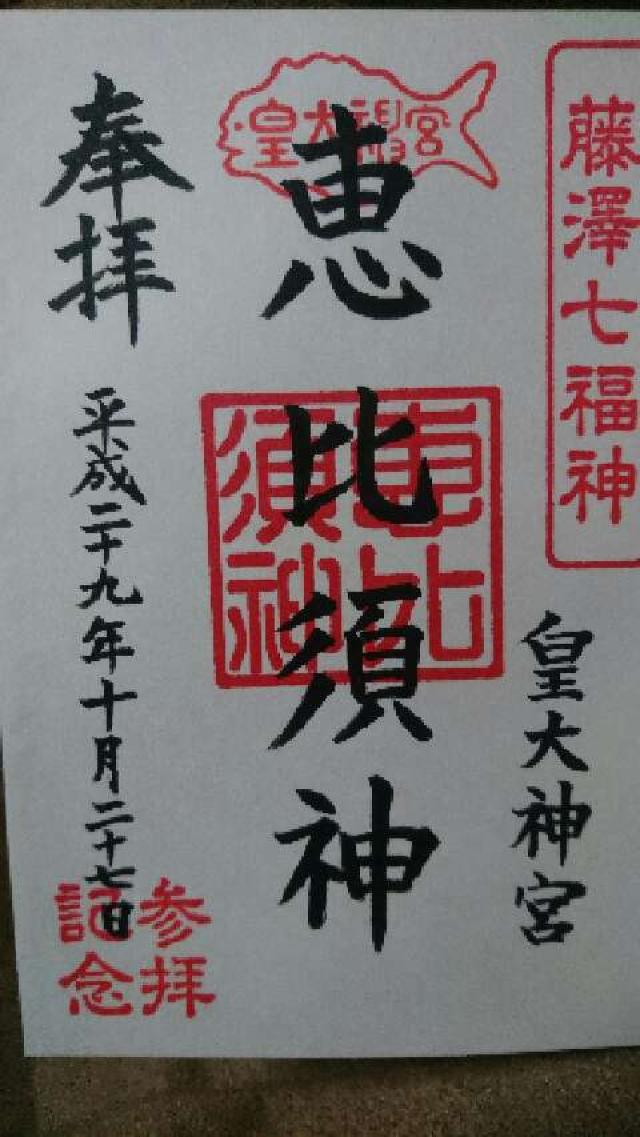 藤澤七福神
皇大神宮
皇大神宮
恵比須神
恵比
須神
奉拝
平成二十九年十月二十七日
参拝
記念